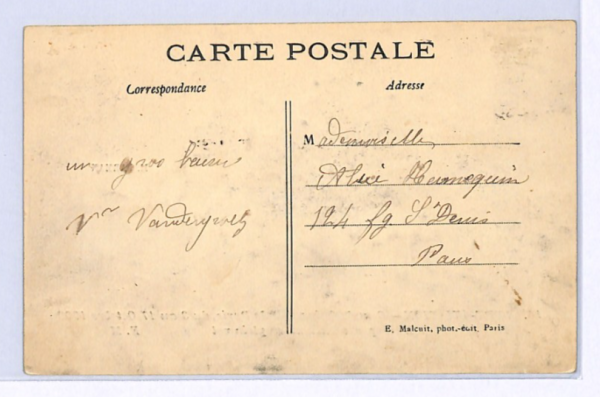 CARTE POSTALE
Correspondance
Adresse
un gros baiser
Vr
Mademoiselle
Alice Hennequin
124 fg St Denis
Paris
E. Malcuit, phot.-édit. Paris